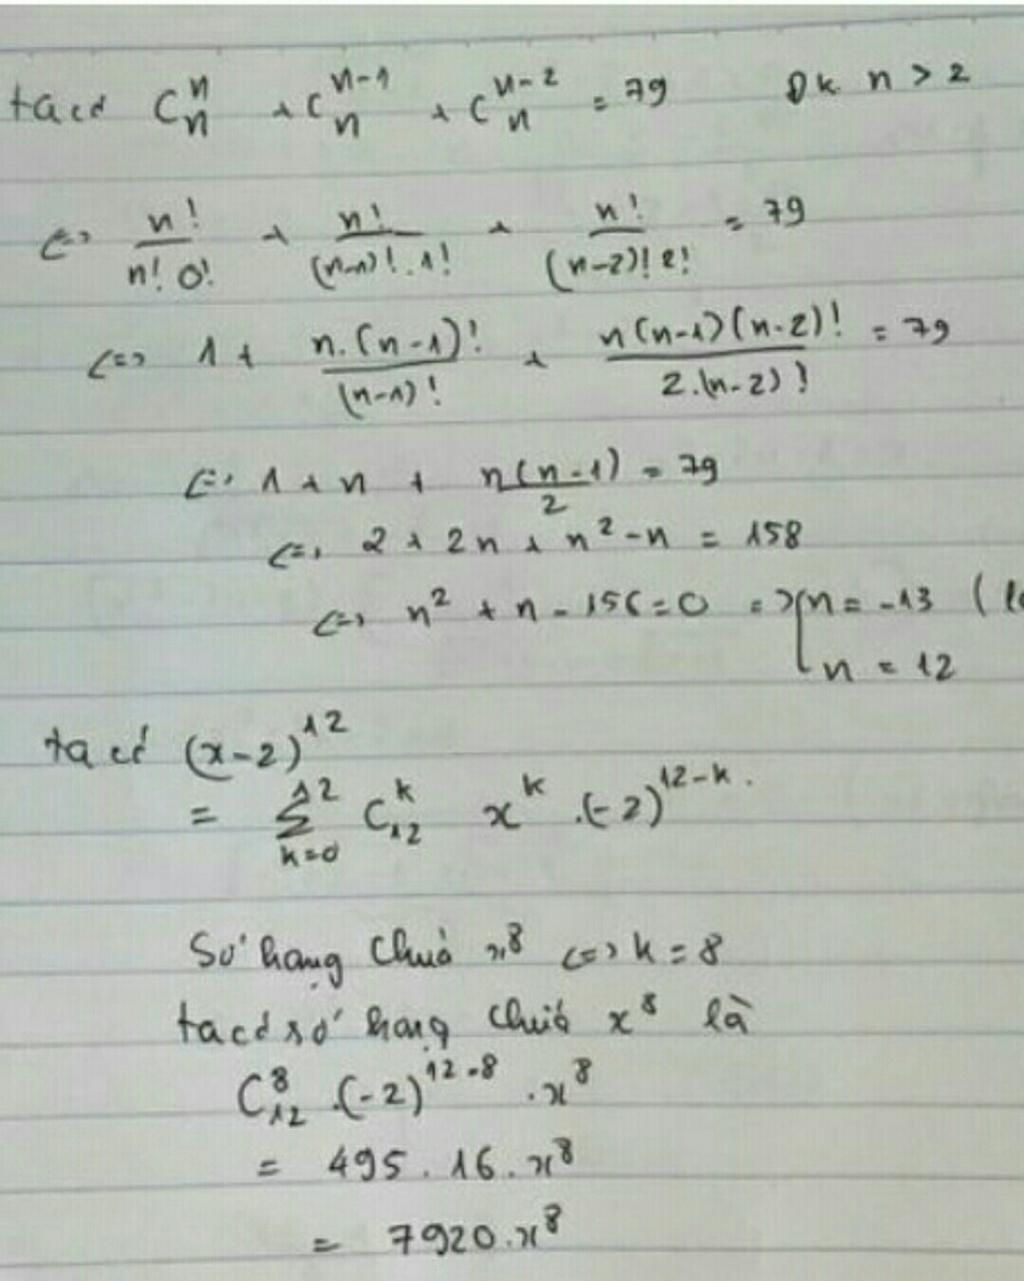 ta có C_n^n + C_n^{n-1} + C_n^{n-2} = 79 Đk n > 2
<=> n!/(n! 0!) + n!/((n-1)!.1!) + n!/((n-2)! 2!) = 79
<=> 1 + n.(n-1)!/(n-1)! + n(n-1)(n-2)!/(2.(n-2)!) = 79
<=> 1 + n + n(n-1)/2 = 79
<=> 2 + 2n + n² - n = 158
<=> n² + n - 156 = 0 => [n = -13 (
n = 12
ta có (x-2)^{12}
= ∑_{k=0}^{12} C_{12}^k x^k .(-2)^{12-k}.
Số hạng chứa x⁸ <=> k = 8
ta có số hạng chứa x⁸ là
C_{12}^8 .(-2)^{12-8} . x⁸
= 495 . 16 . x⁸
= 7920 . x⁸